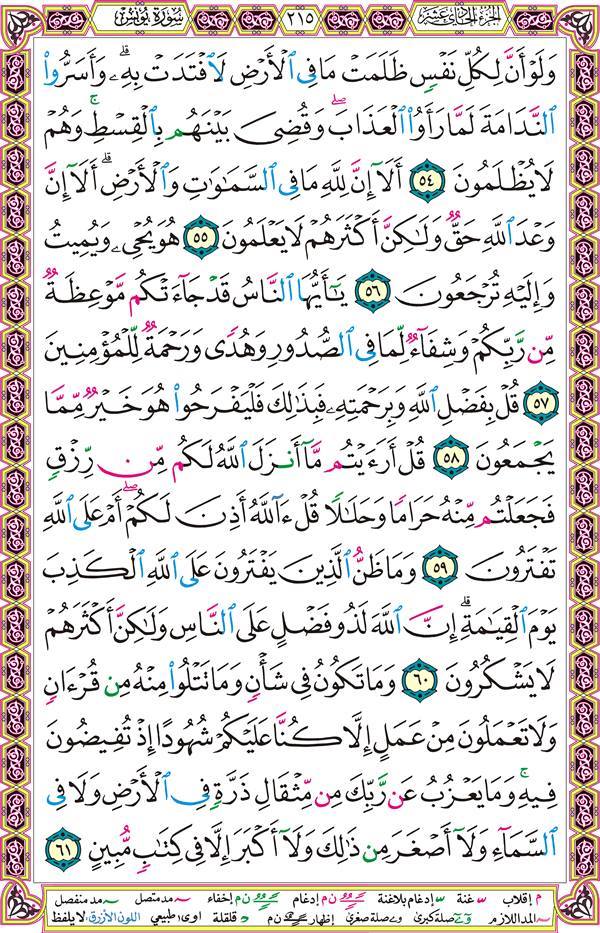 سورة يونس ٢١٥ الجزء الحادي عشر
وَلَوْ أَنَّ لِكُلِّ نَفْسٍ ظَلَمَتْ مَا فِي الْأَرْضِ لَافْتَدَتْ بِهِۦ ۗ وَأَسَرُّوا۟
النَّدَامَةَ لَمَّا رَأَوُا۟ الْعَذَابَ ۖ وَقُضِيَ بَيْنَهُم بِالْقِسْطِ ۚ وَهُمْ
لَا يُظْلَمُونَ ٥٤ أَلَآ إِنَّ لِلَّهِ مَا فِي السَّمَٰوَٰتِ وَالْأَرْضِ ۗ أَلَآ إِنَّ
وَعْدَ اللَّهِ حَقٌّ وَلَٰكِنَّ أَكْثَرَهُمْ لَا يَعْلَمُونَ ٥٥ هُوَ يُحْيِۦ وَيُمِيتُ
وَإِلَيْهِ تُرْجَعُونَ ٥٦ يَٰٓأَيُّهَا النَّاسُ قَدْ جَآءَتْكُم مَّوْعِظَةٌ
مِّن رَّبِّكُمْ وَشِفَآءٌ لِّمَا فِي الصُّدُورِ وَهُدًى وَرَحْمَةٌ لِّلْمُؤْمِنِينَ
٥٧ قُلْ بِفَضْلِ اللَّهِ وَبِرَحْمَتِهِۦ فَبِذَٰلِكَ فَلْيَفْرَحُوا۟ هُوَ خَيْرٌ مِّمَّا
يَجْمَعُونَ ٥٨ قُلْ أَرَءَيْتُم مَّآ أَنزَلَ اللَّهُ لَكُم مِّن رِّزْقٍ
فَجَعَلْتُم مِّنْهُ حَرَامًا وَحَلَٰلًا قُلْ ءَآللَّهُ أَذِنَ لَكُمْ ۖ أَمْ عَلَى اللَّهِ
تَفْتَرُونَ ٥٩ وَمَا ظَنُّ الَّذِينَ يَفْتَرُونَ عَلَى اللَّهِ الْكَذِبَ
يَوْمَ الْقِيَٰمَةِ ۗ إِنَّ اللَّهَ لَذُو فَضْلٍ عَلَى النَّاسِ وَلَٰكِنَّ أَكْثَرَهُمْ
لَا يَشْكُرُونَ ٦٠ وَمَا تَكُونُ فِي شَأْنٍ وَمَا تَتْلُوا۟ مِنْهُ مِن قُرْءَانٍ
وَلَا تَعْمَلُونَ مِنْ عَمَلٍ إِلَّا كُنَّا عَلَيْكُمْ شُهُودًا إِذْ تُفِيضُونَ
فِيهِ ۚ وَمَا يَعْزُبُ عَن رَّبِّكَ مِن مِّثْقَالِ ذَرَّةٍ فِي الْأَرْضِ وَلَا فِي
السَّمَآءِ وَلَآ أَصْغَرَ مِن ذَٰلِكَ وَلَآ أَكْبَرَ إِلَّا فِي كِتَٰبٍ مُّبِينٍ ٦١
م إقلاب غنة إدغام بلاغنة ن م إدغام ن م إخفاء مد متصل مد منفصل
المد اللازم صلة كبرى صلة صغرى إظهار ن م قلقلة اوى: طبيعي اللون الأزرق: لا يلفظ